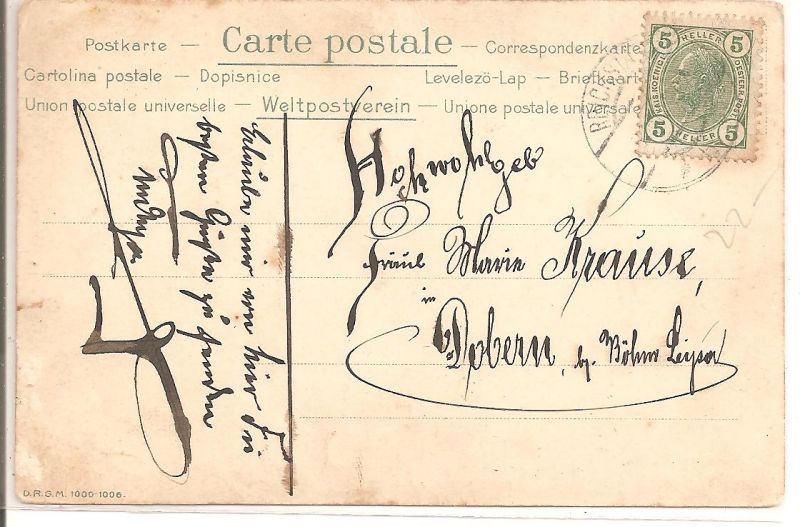 Postkarte — Carte postale — Correspondenzkarte
Cartolina postale — Dopisnice Levelező-Lap — Briefkaart
Union postale universelle — Weltpostverein — Unione postale universale
5 HELLER 5
KAIS. KOENIGL. OESTERR. POST
5 HELLER 5
Hochwohlgeb
Fräul Marie Krause,
in
Dobern, b. Böhm Leipa
Erlaube mir von hier die
besten Grüße zu senden
22-
D.R.S.M. 1000-1006.